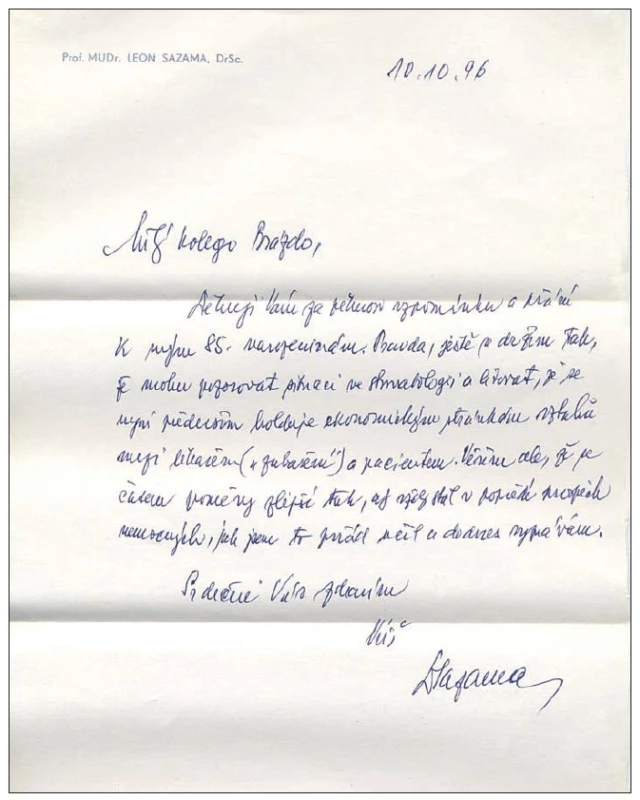 Prof. MUDr. LEON SAZAMA, DrSc.
10.10.96
Milý kolego Brázdo,
Děkuji Vám za pěknou vzpomínku a přání
k mým 85. narozeninám. Pravda, ještě se držím tak,
že mohu pozorovat situaci ve stomatologii a litovat, že se
nyní především holduje ekonomickým stránkám vztahů
mezi lékařem („zubařem") a pacientem. Věřím ale, že se
časem poměry zlepší tak, aby stál v popředí prospěch
nemocných, jak jsem to učil a dodnes vyznávám.
Srdečně Vás zdravím
Váš
LSazama